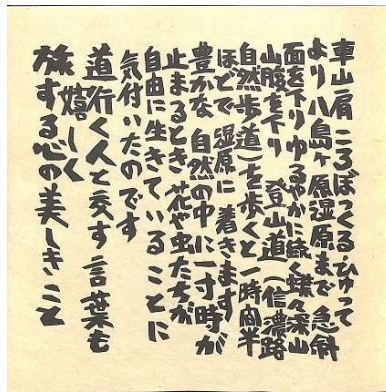 車山肩ころぼっくる・ひゅって
より八島ヶ原湿原まで急斜
面を下りゆるやかに続く蝶々深山
山腹を下り 登山道(信濃路
自然歩道)を歩くと一時間半
ほどで湿原に着きます
豊かな自然の中に一寸時が
止まるとき花や虫たちが
自由に生きていることに
気付いたのです
道行く人と交す言葉も
嬉しく
旅する心の美しきこと